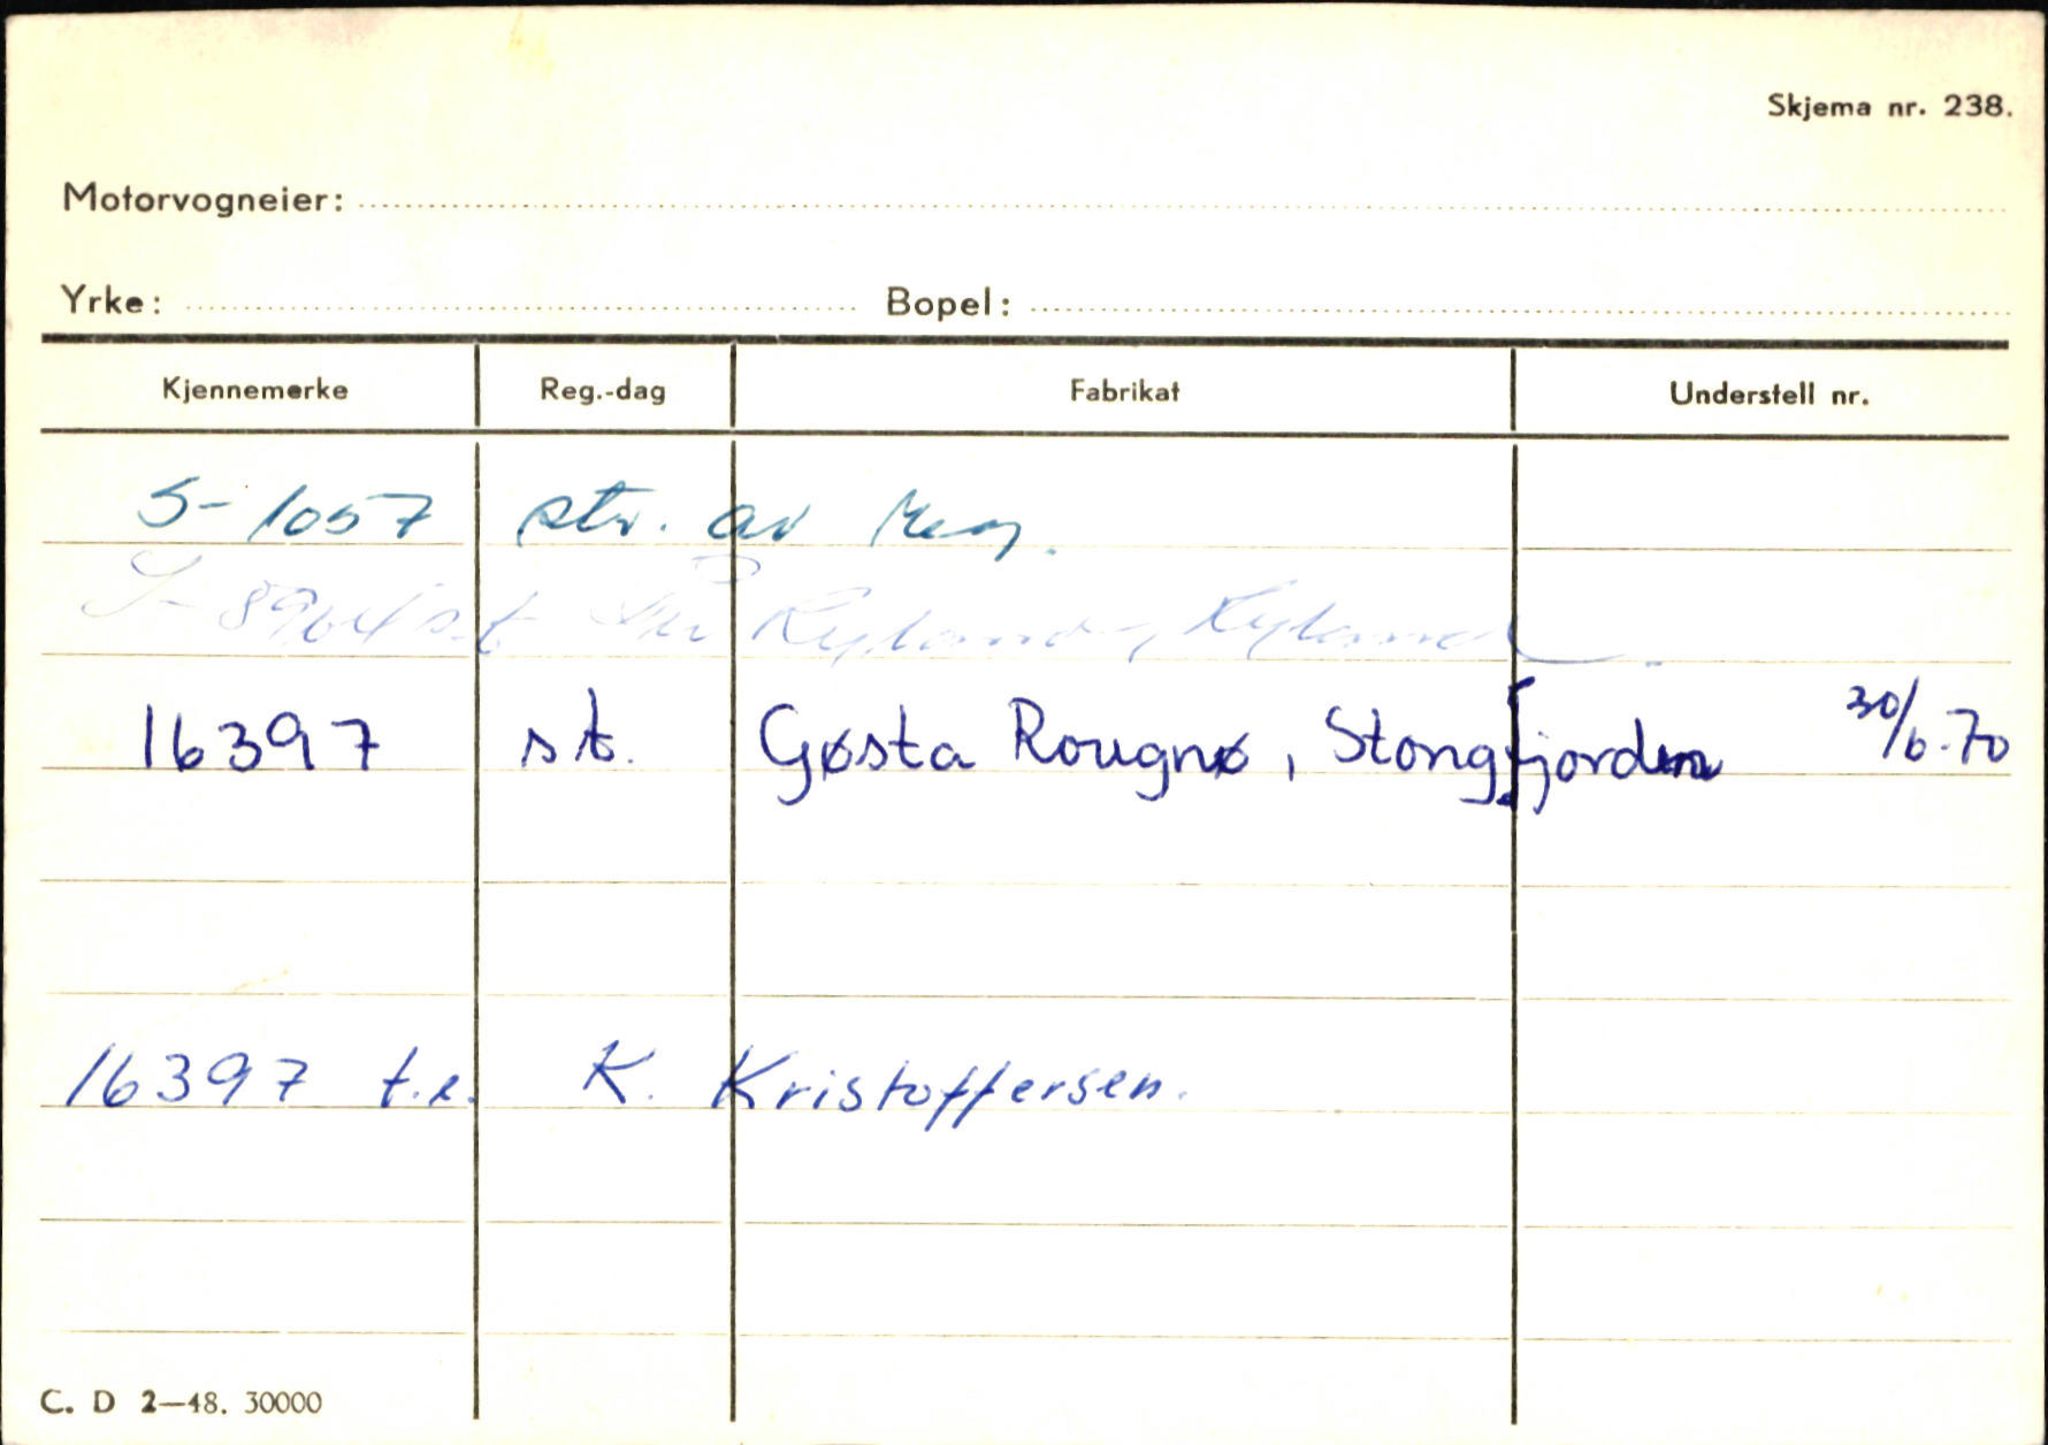 Skjema nr. 238.
Motorvogneier:
Yrke: Bopel:
Kjennemerke Reg.-dag Fabrikat Understell nr.
S-1057 str. av Reg.
S-8964 st. Ryland, Ryland.
16397 st. Gøsta Rougnø, Stongfjorden 30/6-70
16397 t.e. K. Kristoffersen.
C. D 2—48. 30000